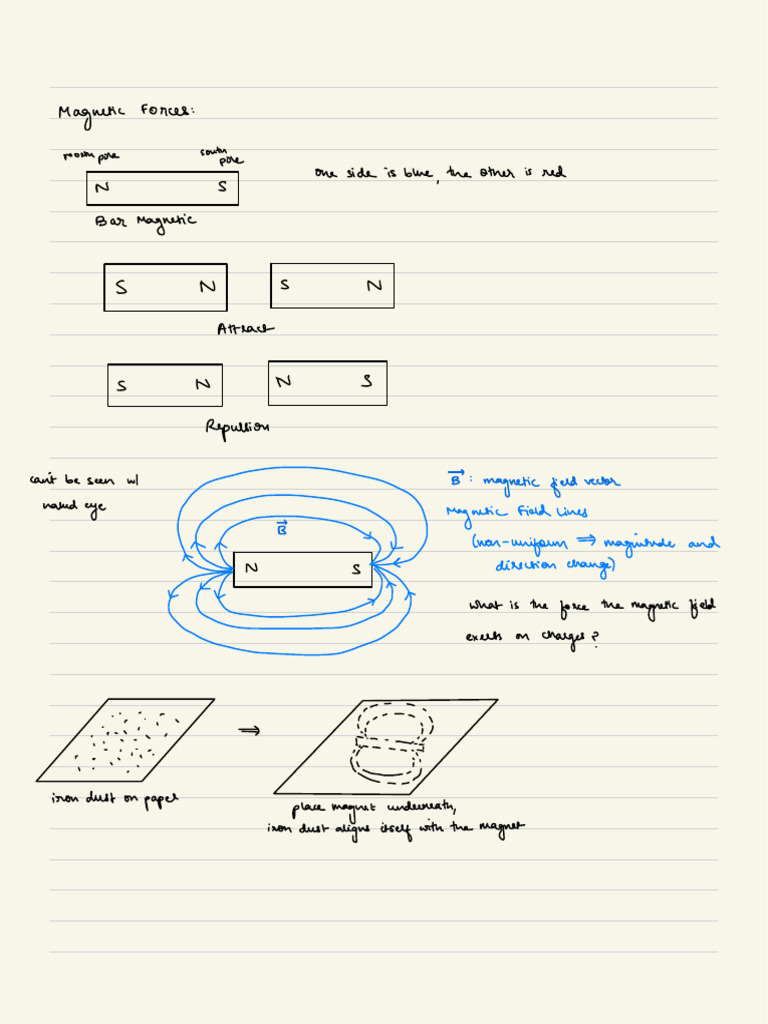 Magnetic Forces:
north pole
south
pole
one side is blue, the other is red
N S
Bar Magnetic
S N S N
Attract
S N N S
Repulsion
can't be seen w/
naked eye
B
B : magnetic field vector
Magnetic Field Lines
(non-uniform ⟹ magnitude and
direction change)
N S
What is the force the magnetic field
exerts on charges?
⟹
iron dust on paper
place magnet underneath,
iron dust aligns itself with the magnet